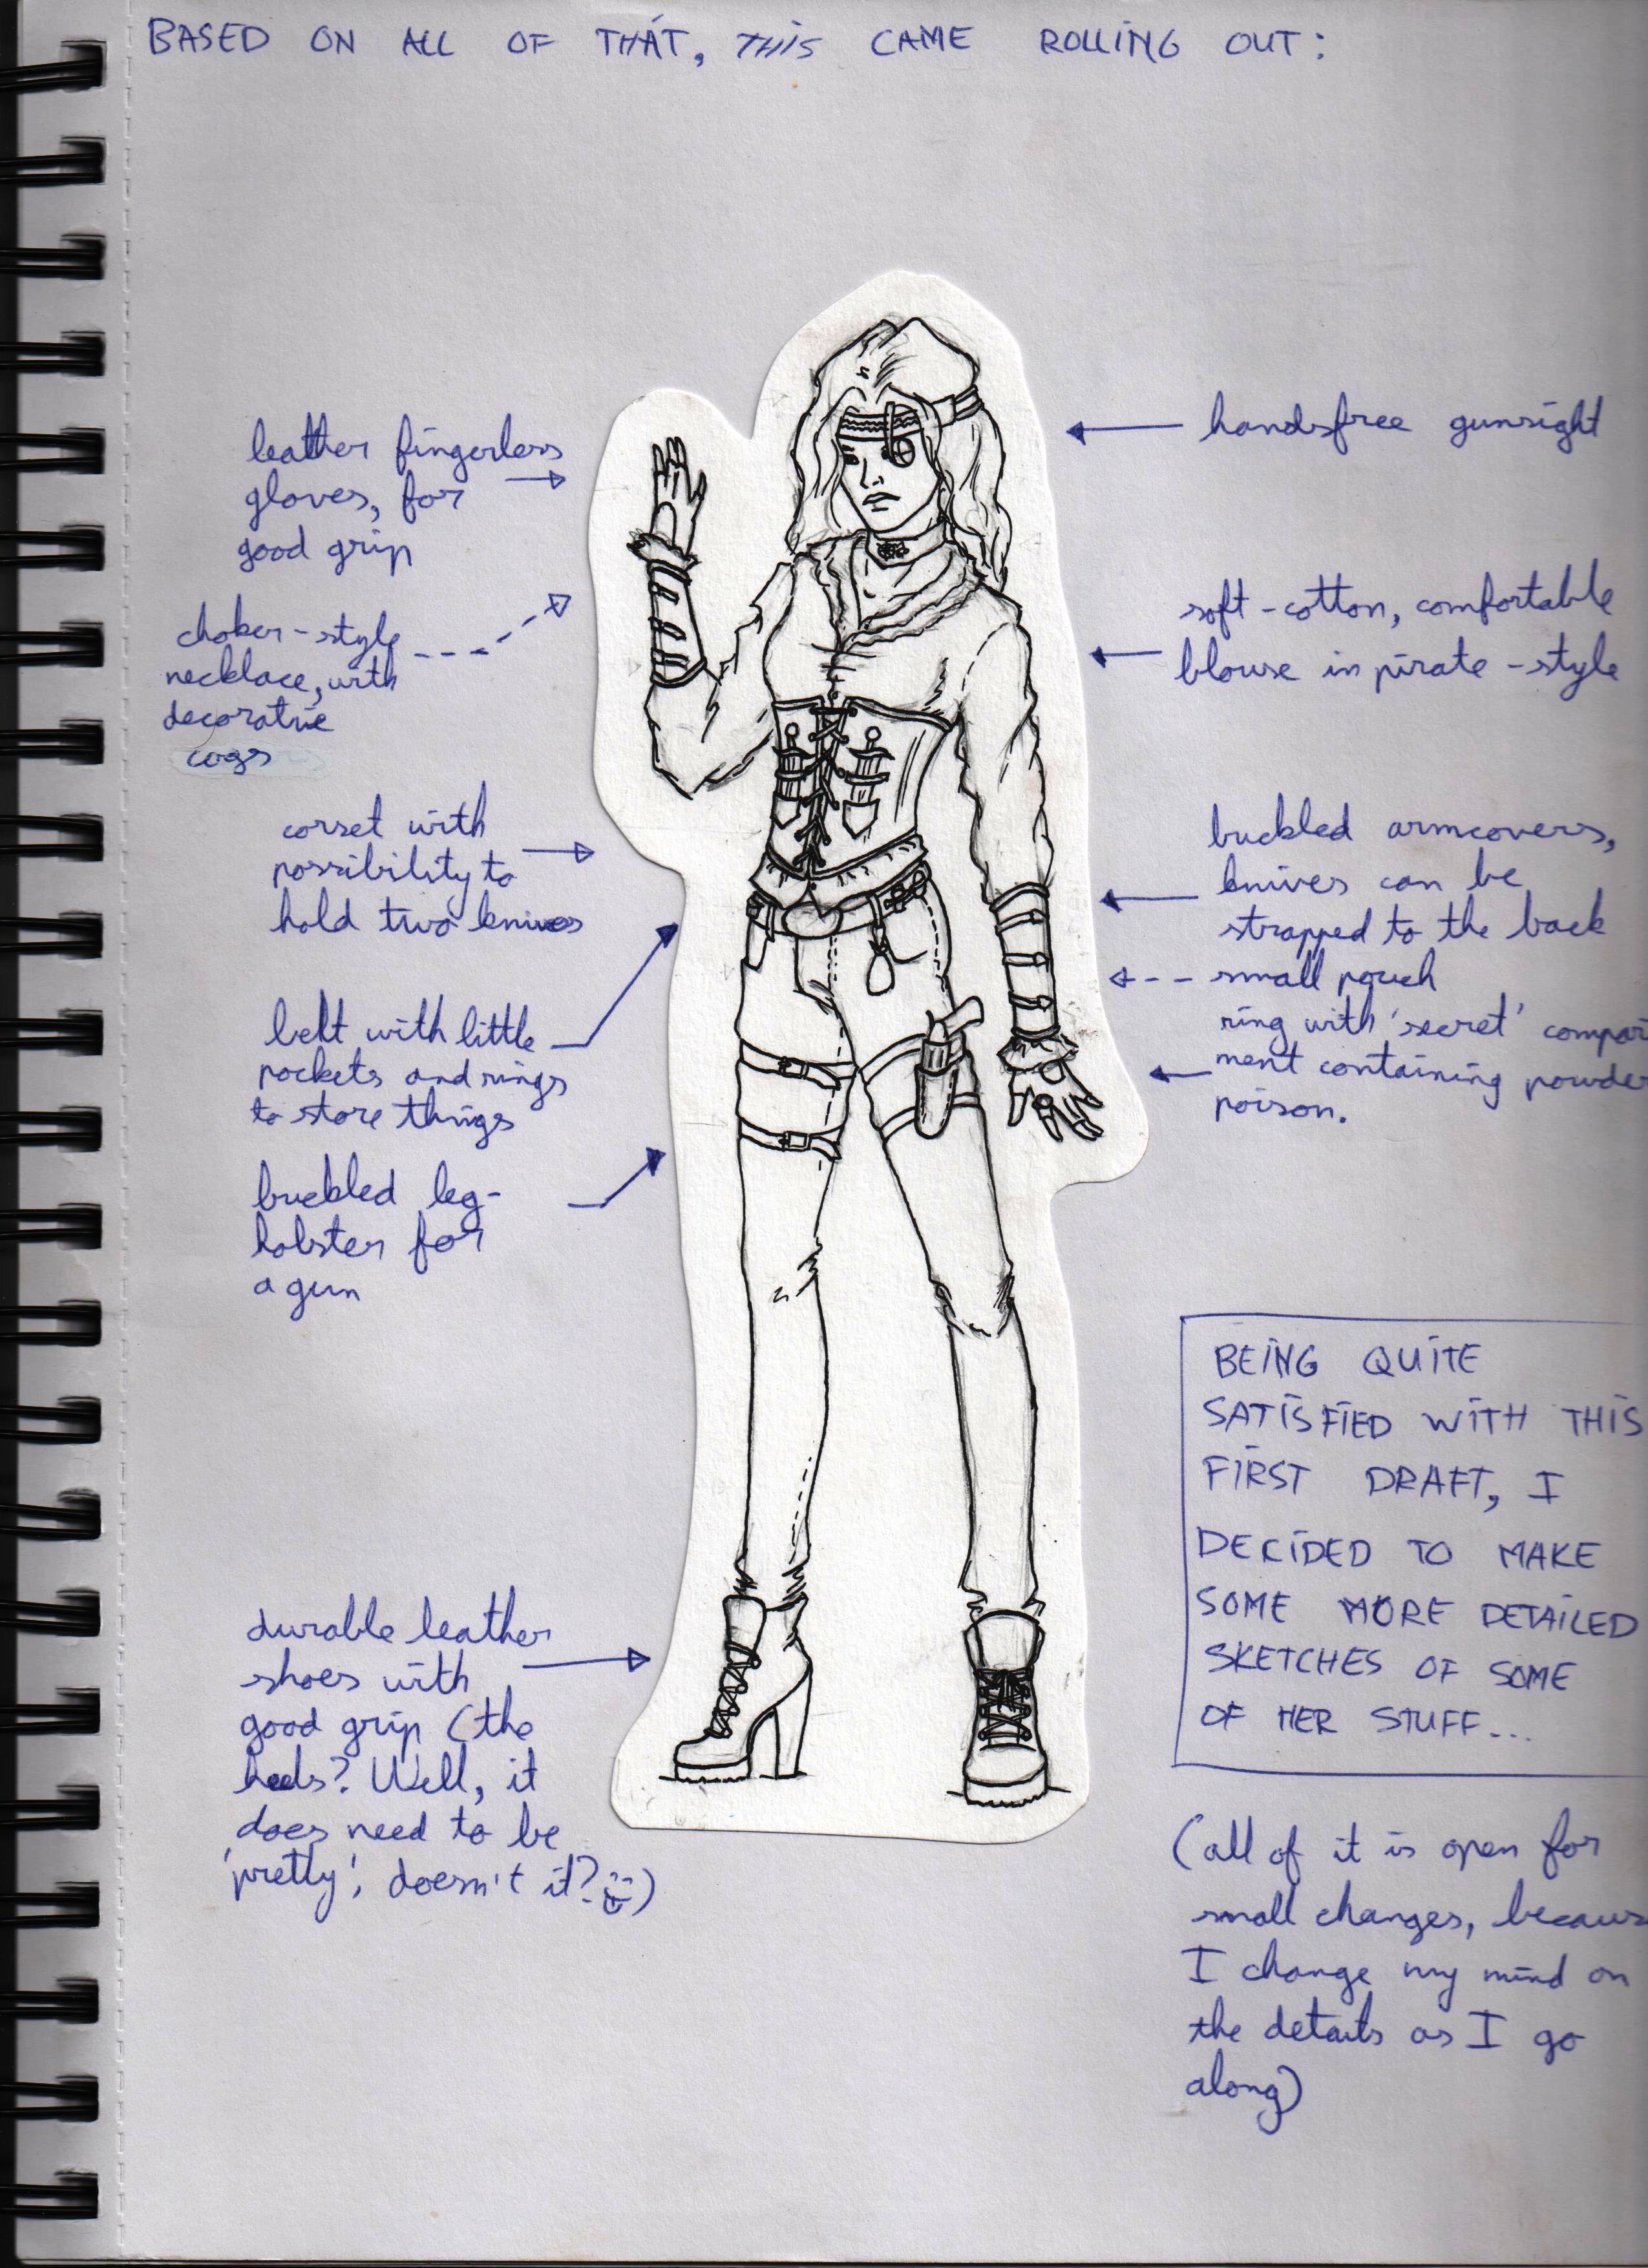 BASED ON ALL OF THÁT, THIS CAME ROLLING OUT:
leather fingerless
gloves, for
good grip
choker-style
necklace, with
decorative
cogs
corset with
possibility to
hold two knives
belt with little
pockets and rings
to store things
buckled leg-
holster for
a gun
durable leather
shoes with
good grip (the
heels? Well, it
does need to be
'pretty', doesn't it?)
handsfree gunsight
soft-cotton, comfortable
blouse in pirate-style
buckled armcovers,
knives can be
strapped to the back
small pouch
ring with 'secret' compar
ment containing powde
poison.
BEING QUITE
SATISFIED WITH THIS
FIRST DRAFT, I
DECIDED TO MAKE
SOME MORE DETAILED
SKETCHES OF SOME
OF HER STUFF...
(all of it is open for
small changes, becaus
I change my mind on
the details as I go
along)